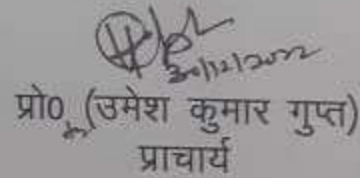 30/12/2022
प्रो0 (उमेश कुमार गुप्त)
प्राचार्य